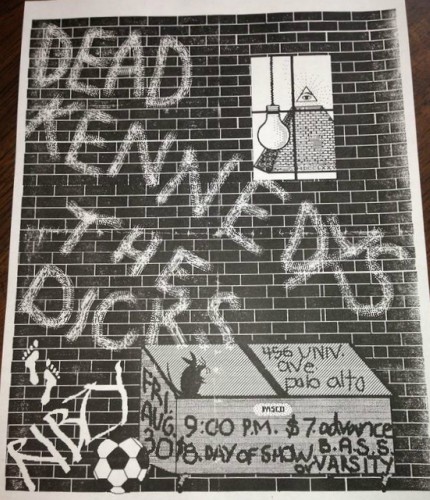 DEAD
KENNEDYS
THE
DICKS
456 UNIV.
ave
palo alto
FRI
AUG
30
PASCO
9:00 P.M. $7. advance
8. DAY OF SHOW B.A.S.S.
or VARSITY